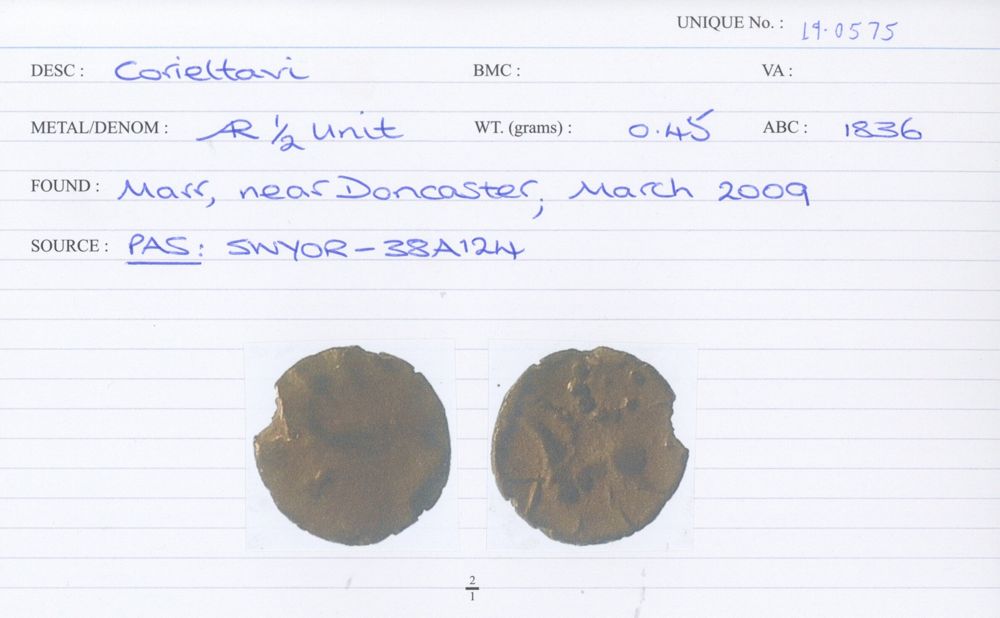 UNIQUE No. : 19.0575
DESC : Corieltavi BMC : VA :
METAL/DENOM : AR ½ Unit WT. (grams) : 0.45 ABC : 1836
FOUND : Marr, near Doncaster, March 2009
SOURCE : PAS: SWYOR-38A124
2
1